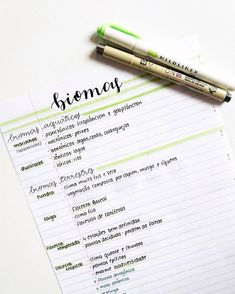 MILDLINER
biomas
biomas aquáticos
marinhos
planctônicos: fitoplâncton e zooplâncton
nectônicos: peixes
bentônicos: algas, corais, caranguejos
dulcícolas
lênticos: lagos
lóticos: rios
biomas terrestres
tundra
clima muito frio e seco
vegetação composta por capim, musgo e líquens
taiga
floresta boreal
clima frio
florestas de coníferas
floresta temperada
4 estações bem definidas
plantas decíduas: perdem as folhas
floresta tropical
clima quente e úmido
plantas epífitas
enorme biodiversidade
floresta amazônica
mata atlântica